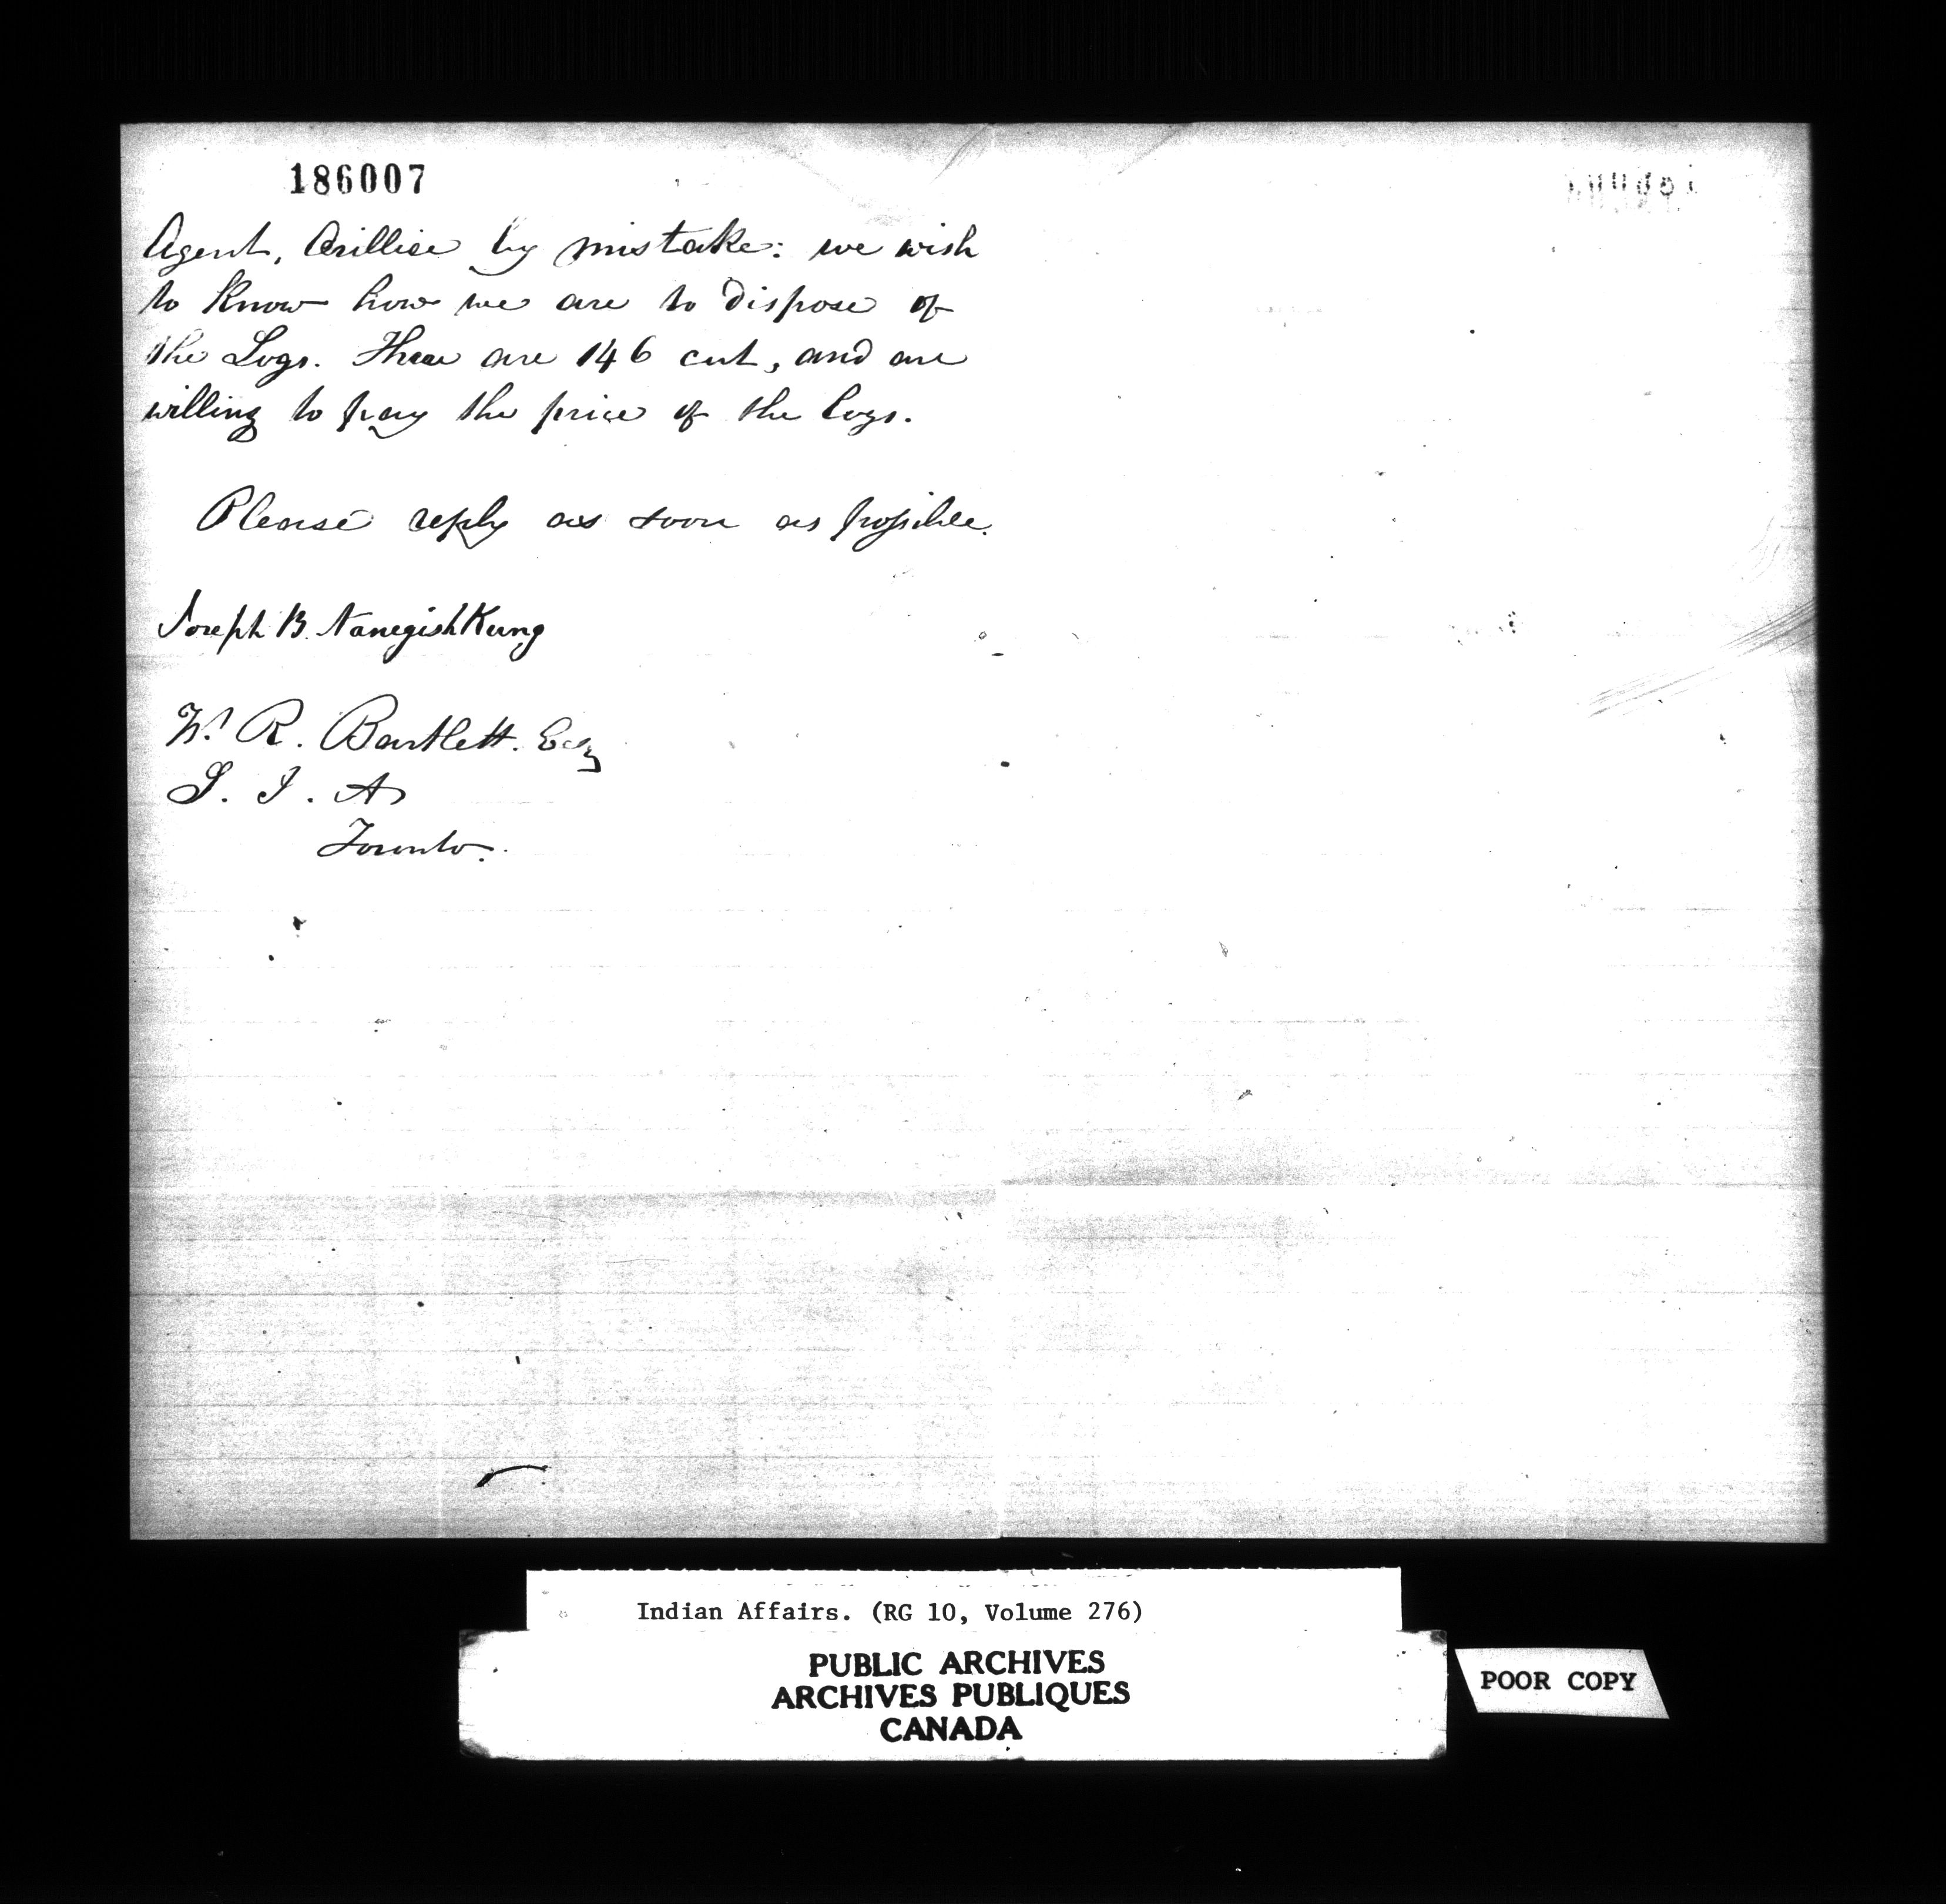 186007
Agent, Orillia by mistake: we wish
to know how we are to dispose of
the Logs. There are 146 cut, and are
willing to pay the price of the logs.
Please reply as soon as possible.
Joseph B. NanegishKung
W. R. Bartlett. Esq
S. I. A
Toronto.
Indian Affairs. (RG 10, Volume 276)
PUBLIC ARCHIVES
ARCHIVES PUBLIQUES
CANADA
POOR COPY